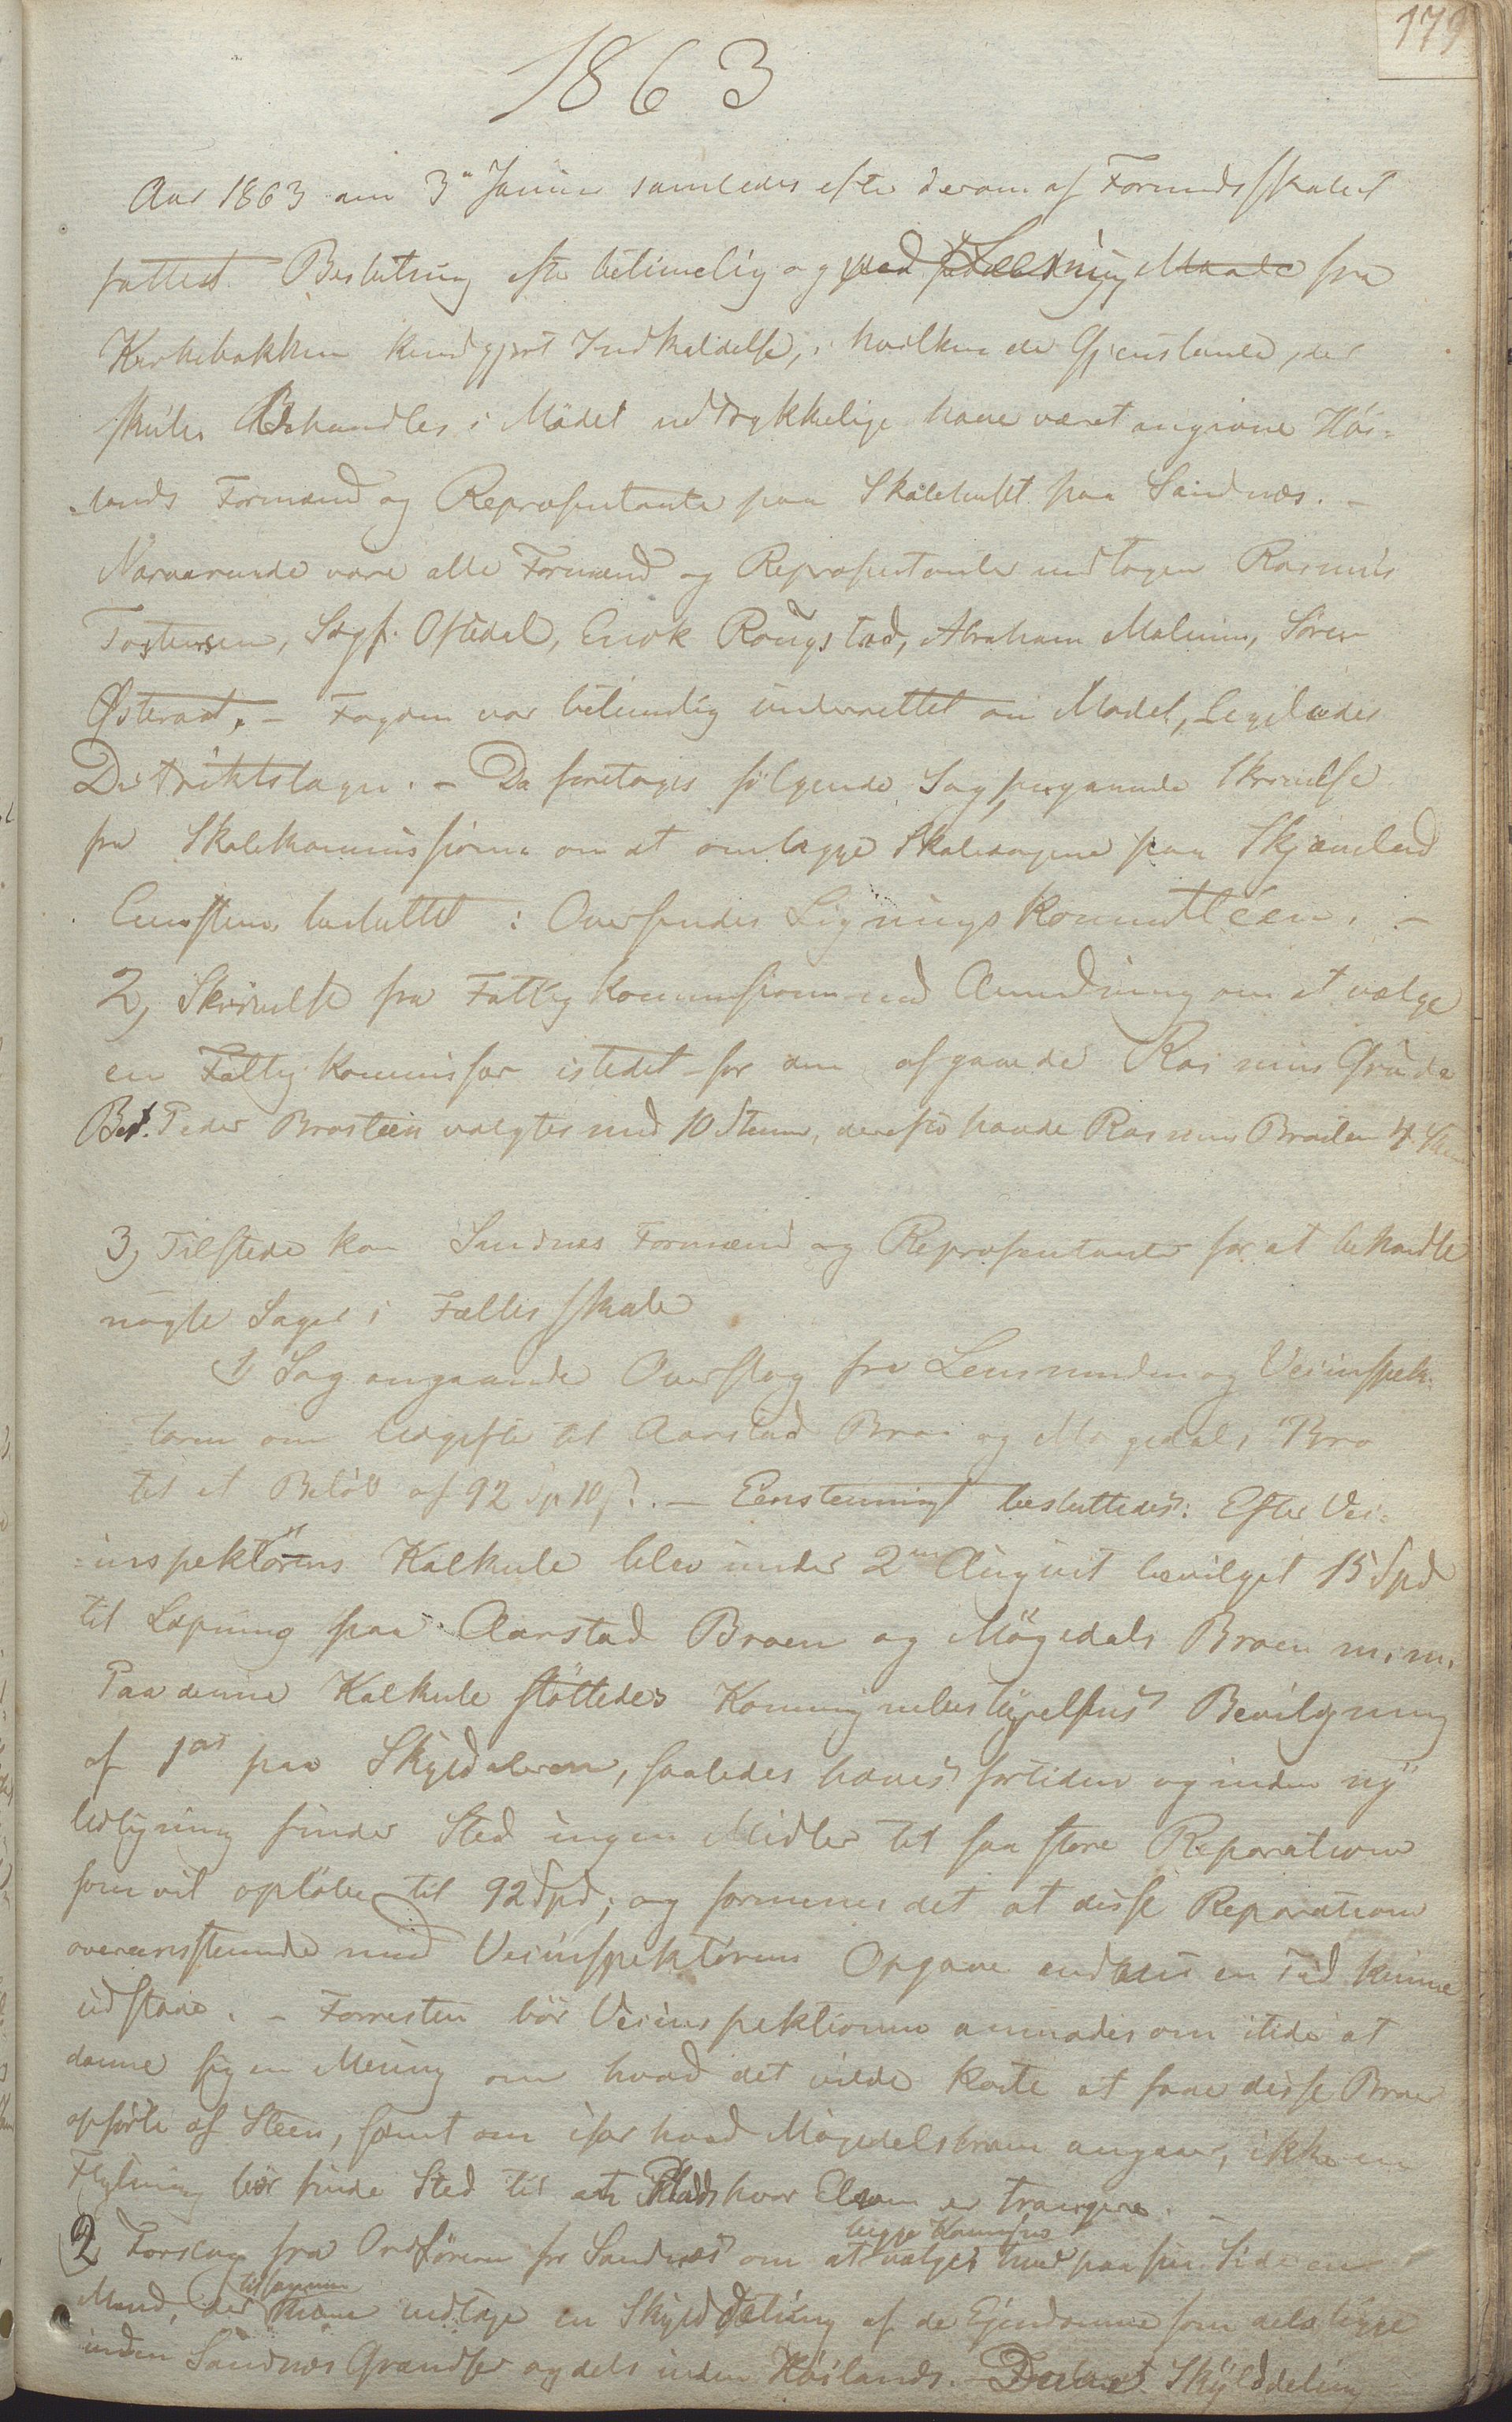 179
1863
Aar 1863 den 3die Januar samledes efter derom af Formandsskabet
fattet Beslutning efter betimelig og paa fra
Kirkebakken kundgjort Indkaldelse, i hvilken de Gjenstande, der
skule Behandles i Mödet udtrykkelige have været angivne Höi-
lands Formænd og Repræsentanter paa Skolehuset paa Sandnæs. -
Nærværende vare alle Formænd og Repræsentanter undtagen Rasmus
Tostensen, Sögf. Oftedal, Enok Rougstad, Abraham Malmin, Sören
Østeraat. - Fogden var betimelig underrettet om Mödet, ligeledes
Distriktslægen. - Da foretoges fölgende Sag, angaaende Skrivelse
fra Skolekommissionen om at omlægge Skolesagene paa Skjæveland
Eenstem. besluttet: Oversendes Ligningskommitteen. -
2, Skrivelse fra Fattigkommissionen med Anmodning om at vælge
en Fattigkommissær istedet for den afgaaende Rasmus Grude
Besl. Peder Brasteen valgtes med 10 Stem, derefter havde Rasmus Brasteen 4 Stem
3, Tilstede kom Sandnæs Formænd og Repræsentanter for at behandle
nogle Sager i Fællesskab
1, Sag angaaende Overslag fra Lensmanden og Veiinspek-
tøren om Udgifter til Aarstad Bro og Mögedals Bro
til et Belöb af 92 Sp 10 ?. - Eenstemmigt besluttedes: Efter Vei-
inspektörens Kalkule blev under 2den August bevilget 15 Spd
til Lapning paa Aarstad Broen og Mögedals Broen m.m.
Paa denne Kalkule støttedes Kommunebestyrelsens Bevilgning
af 1 paa Skylddaleren, saaledes haves fortiden og inden ny
Udligning finder Sted ingen Midler til saa store Reparationer
som vil opløbe til 92 Spd; og formenes det at disse Reparationer
overensstemmende med Veiinspektörens Opgave endnu en Tid kunne
udstaae. - Forresten bör Veiinspektionen anmodes om itide at
danne sig en Mening om hvad det vilde koste at faae disse Broer
opförte af Steen, samt om især hvad Mögedalsbroen angaaer, ikke en
Flytning bör finde Sted til et Plads hvor Elven er trangere. -
2 Forslag fra Ordföreren for Sandnæs om at begge Kommuner vælges hver paa sin Side en
Mand, der tilsammen kunne indtage en Skylddeling af de Ejendomme som dels ligge
inden Sandnæs Grændser og dels inden Höilands. - Skylddeling